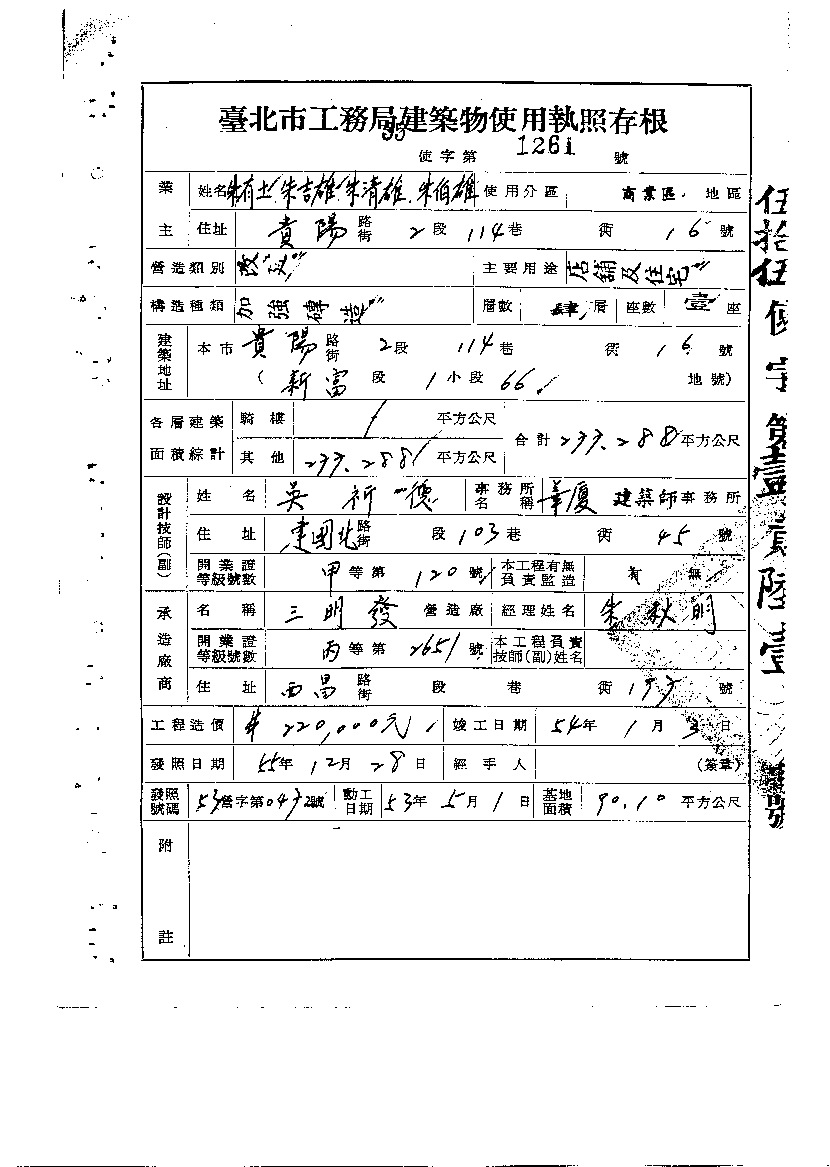 臺北市工務局建築物使用執照存根
使字第 1261 號
業主 姓名 朱吉雄 朱清雄 朱伯雄 使用分區 商業區 地區
住址 貴陽 路街 2段 114巷 衖 16號
營造類別 主要用途 店舖及住宅
構造種類 加強磚造 層數 肆層 座數 壹座
建築地址 本市 貴陽 路街 2段 114巷 衖 16號
(新富段 1小段 66 地號)
各層建築面積綜計 騎樓 / 平方公尺 合計 233.288平方公尺
其他 233.288 平方公尺
設計技師(副) 姓名 吳祈德 事務所名稱 華廈 建築師事務所
住址 建國北 路街 段 103巷 衖 45號
開業證等級號數 甲等第 120號 本工程有無負責監造 有 無
承造廠商 名稱 三明發 營造廠 經理姓名 朱秋明
開業證等級號數 丙等第 2651號 本工程負責技師(副)姓名
住址 西昌 路街 段 巷 衖 號
工程造價 220,000元 竣工日期 54年 1月 3日
發照日期 55年 12月 28日 經手人 (簽章)
發照號碼 53營字第 號 動工日期 53年 5月 1日 基地面積 90.10 平方公尺
附註
伍拾伍使字第壹貳陸壹號